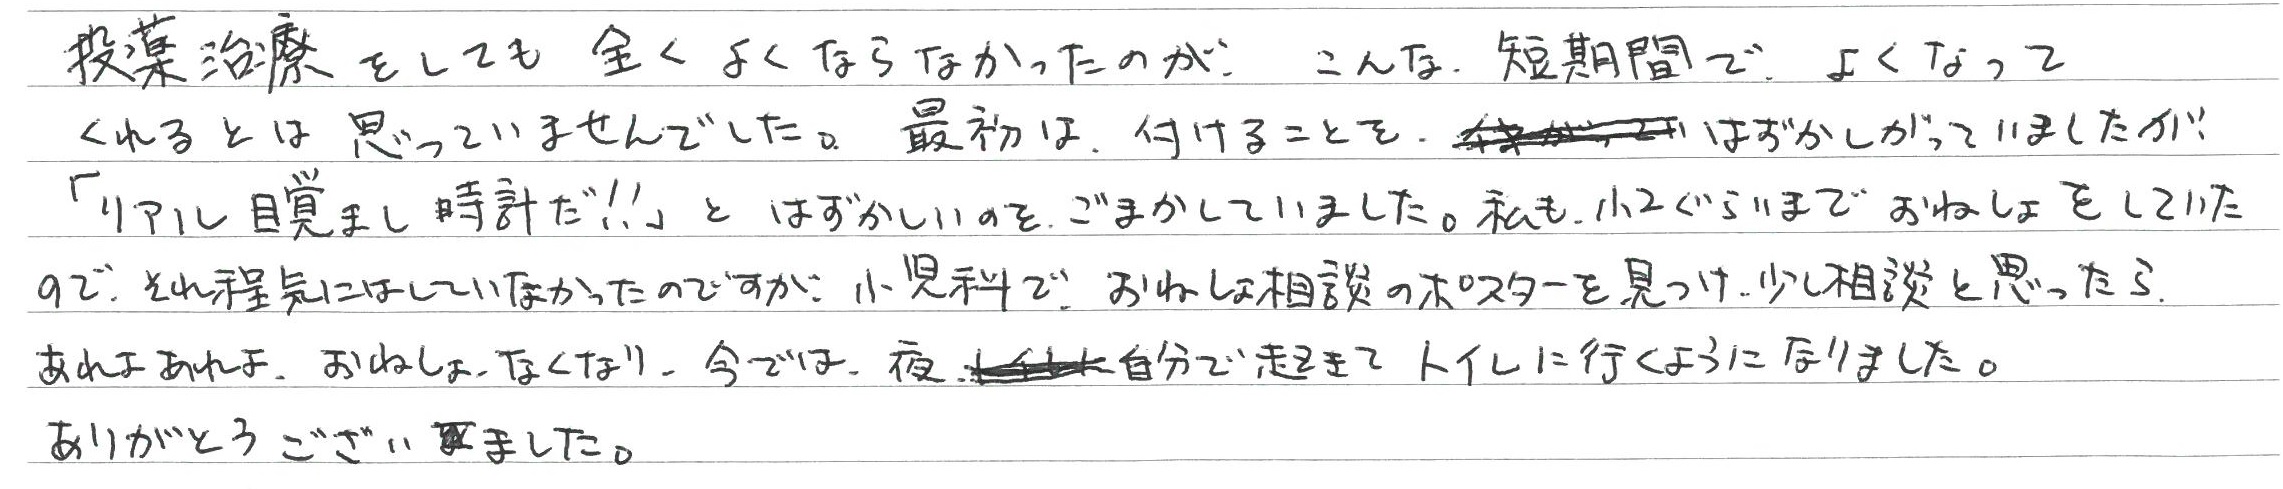 投薬治療をしても全くよくならなかったのが、こんな、短期間で、よくなって
くれるとは思っていませんでした。最初は、付けることを、はずかしがっていましたが、
「リアル目覚まし時計だ!!」とはずかしいのを、ごまかしていました。私も、小2ぐらいまでおねしょをしていた
ので、それ程気にはしていなかったのですが、小児科で、おねしょ相談のポスターを見つけ、少し相談と思ったら、
あれよあれよ、おねしょ、なくなり、今では、夜、自分で起きてトイレに行くようになりました。
ありがとうございました。